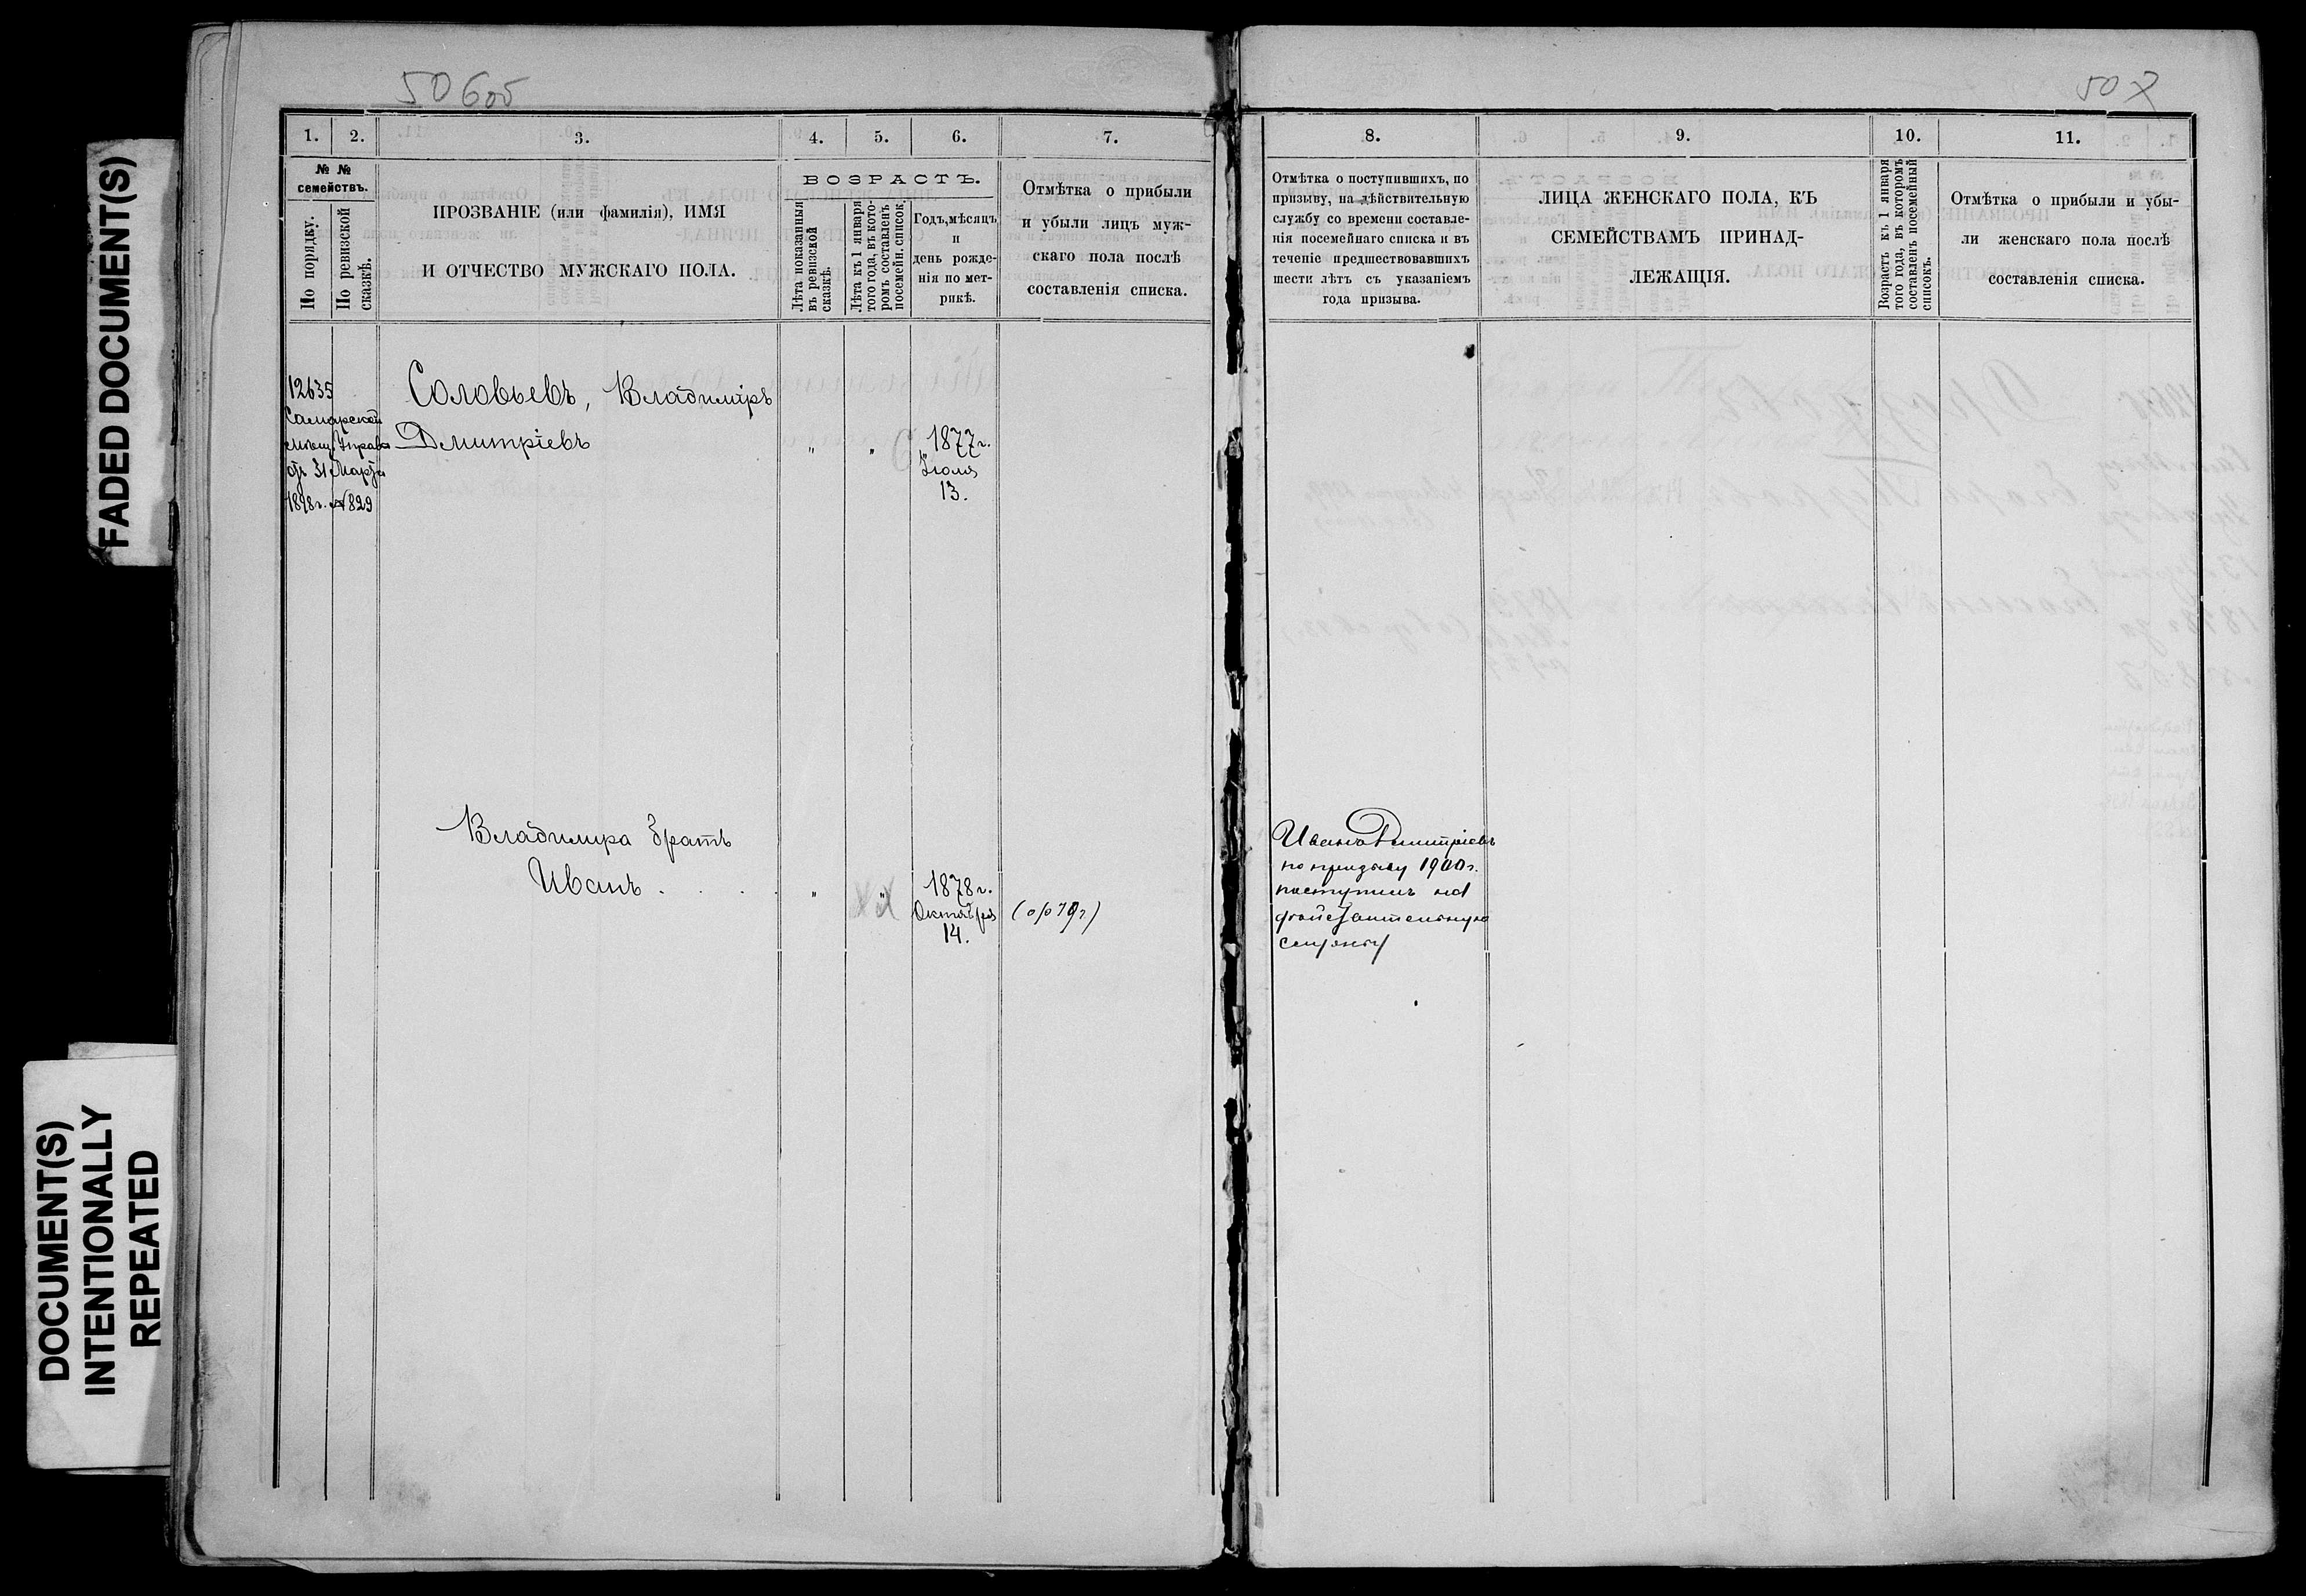 FADED DOCUMENT(S)
DOCUMENT(S)
INTENTIONALLY
REPEATED
50 6об
1. 2. 3. 4. 5. 6. 7.
№ №
семействъ.
По порядку.
По ревизской
сказкѣ.
ПРОЗВАНІЕ (или фамилія), ИМЯ
И ОТЧЕСТВО МУЖСКАГО ПОЛА.
ВОЗРАСТЪ.
Лѣта показанныя
въ ревизской
сказкѣ.
Лѣта къ 1 января
того года, въ кото-
ромъ составленъ
посемейн. список.
Годъ, мѣсяцъ
и
день рожде-
нія по мет-
рикѣ.
Отмѣтка о прибыли
и убыли лицъ муж-
скаго пола послѣ
составленія списка.
12635
Самарской
мѣщ. Управы
отъ 31 Марта
1898г. №829
Соловьевъ, Владиміръ
Дмитріевъ " "
1877г.
Іюля
13.
Владимира братъ
Иванъ . . . " "
1878г.
Октября
14.
507
8. 9. 10. 11.
Отмѣтка о поступившихъ, по
призыву, на дѣйствительную
службу со времени составле-
нія посемейнаго списка и въ
теченіе предшествовавшихъ
шести лѣтъ съ указаніемъ
года призыва.
ЛИЦА ЖЕНСКАГО ПОЛА, КЪ
СЕМЕЙСТВАМЪ ПРИНАД-
ЛЕЖАЩІЯ.
Возрастъ къ 1 января
того года, въ которомъ
составленъ посемейный
списокъ.
Отмѣтка о прибыли и убы-
ли женскаго пола послѣ
составленія списка.
Иванъ Дмитріевъ
по призыву 1900г.
поступилъ на
дѣйствительную
службу